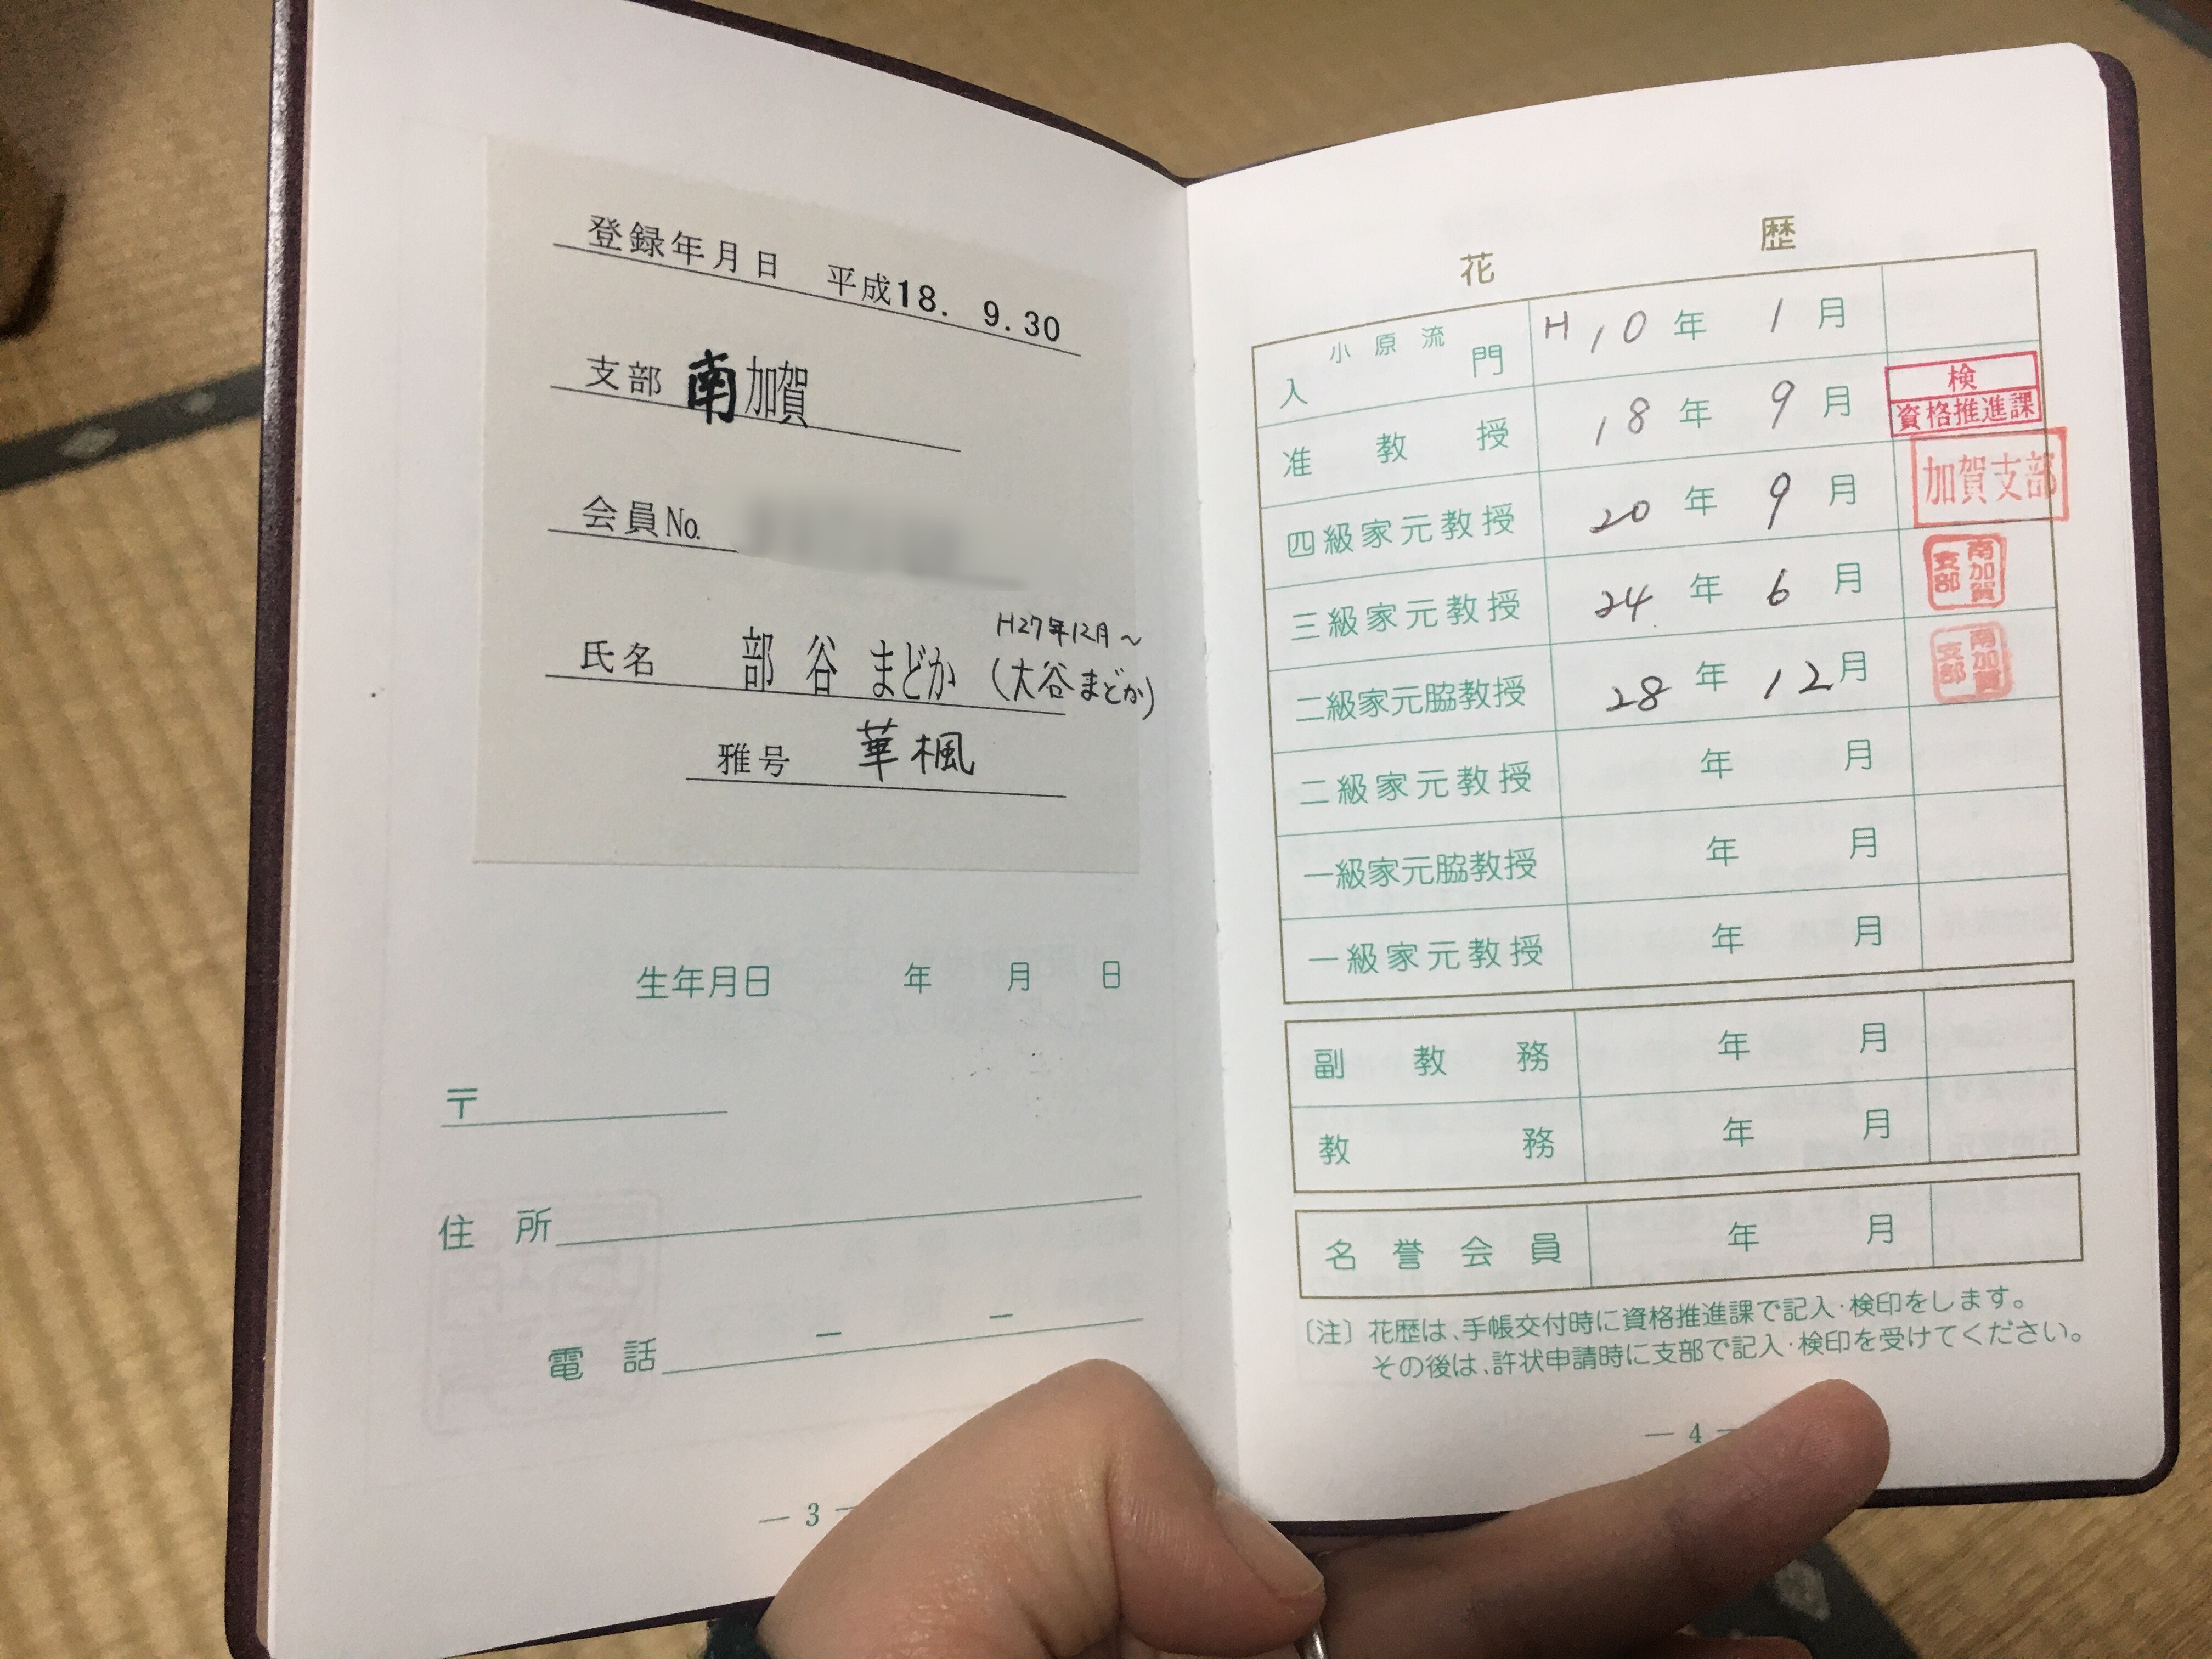 登録年月日 平成18. 9.30
支部 南加賀
会員No.
氏名 部谷 まどか (大谷まどか)
H27年12月～
雅号 華楓
生年月日 年 月 日
〒
住所
電話 ー ー
— 3 —
花歴
小原流入門 H10年 1月
准教授 18年 9月 検 資格推進課
四級家元教授 20年 9月 加賀支部
三級家元教授 24年 6月 南加賀支部
二級家元脇教授 28年 12月 南加賀支部
二級家元教授 年 月
一級家元脇教授 年 月
一級家元教授 年 月
副教務 年 月
教務 年 月
名誉会員 年 月
〔注〕花歴は、手帳交付時に資格推進課で記入·検印をします。
その後は、許状申請時に支部で記入·検印を受けてください。
— 4 —